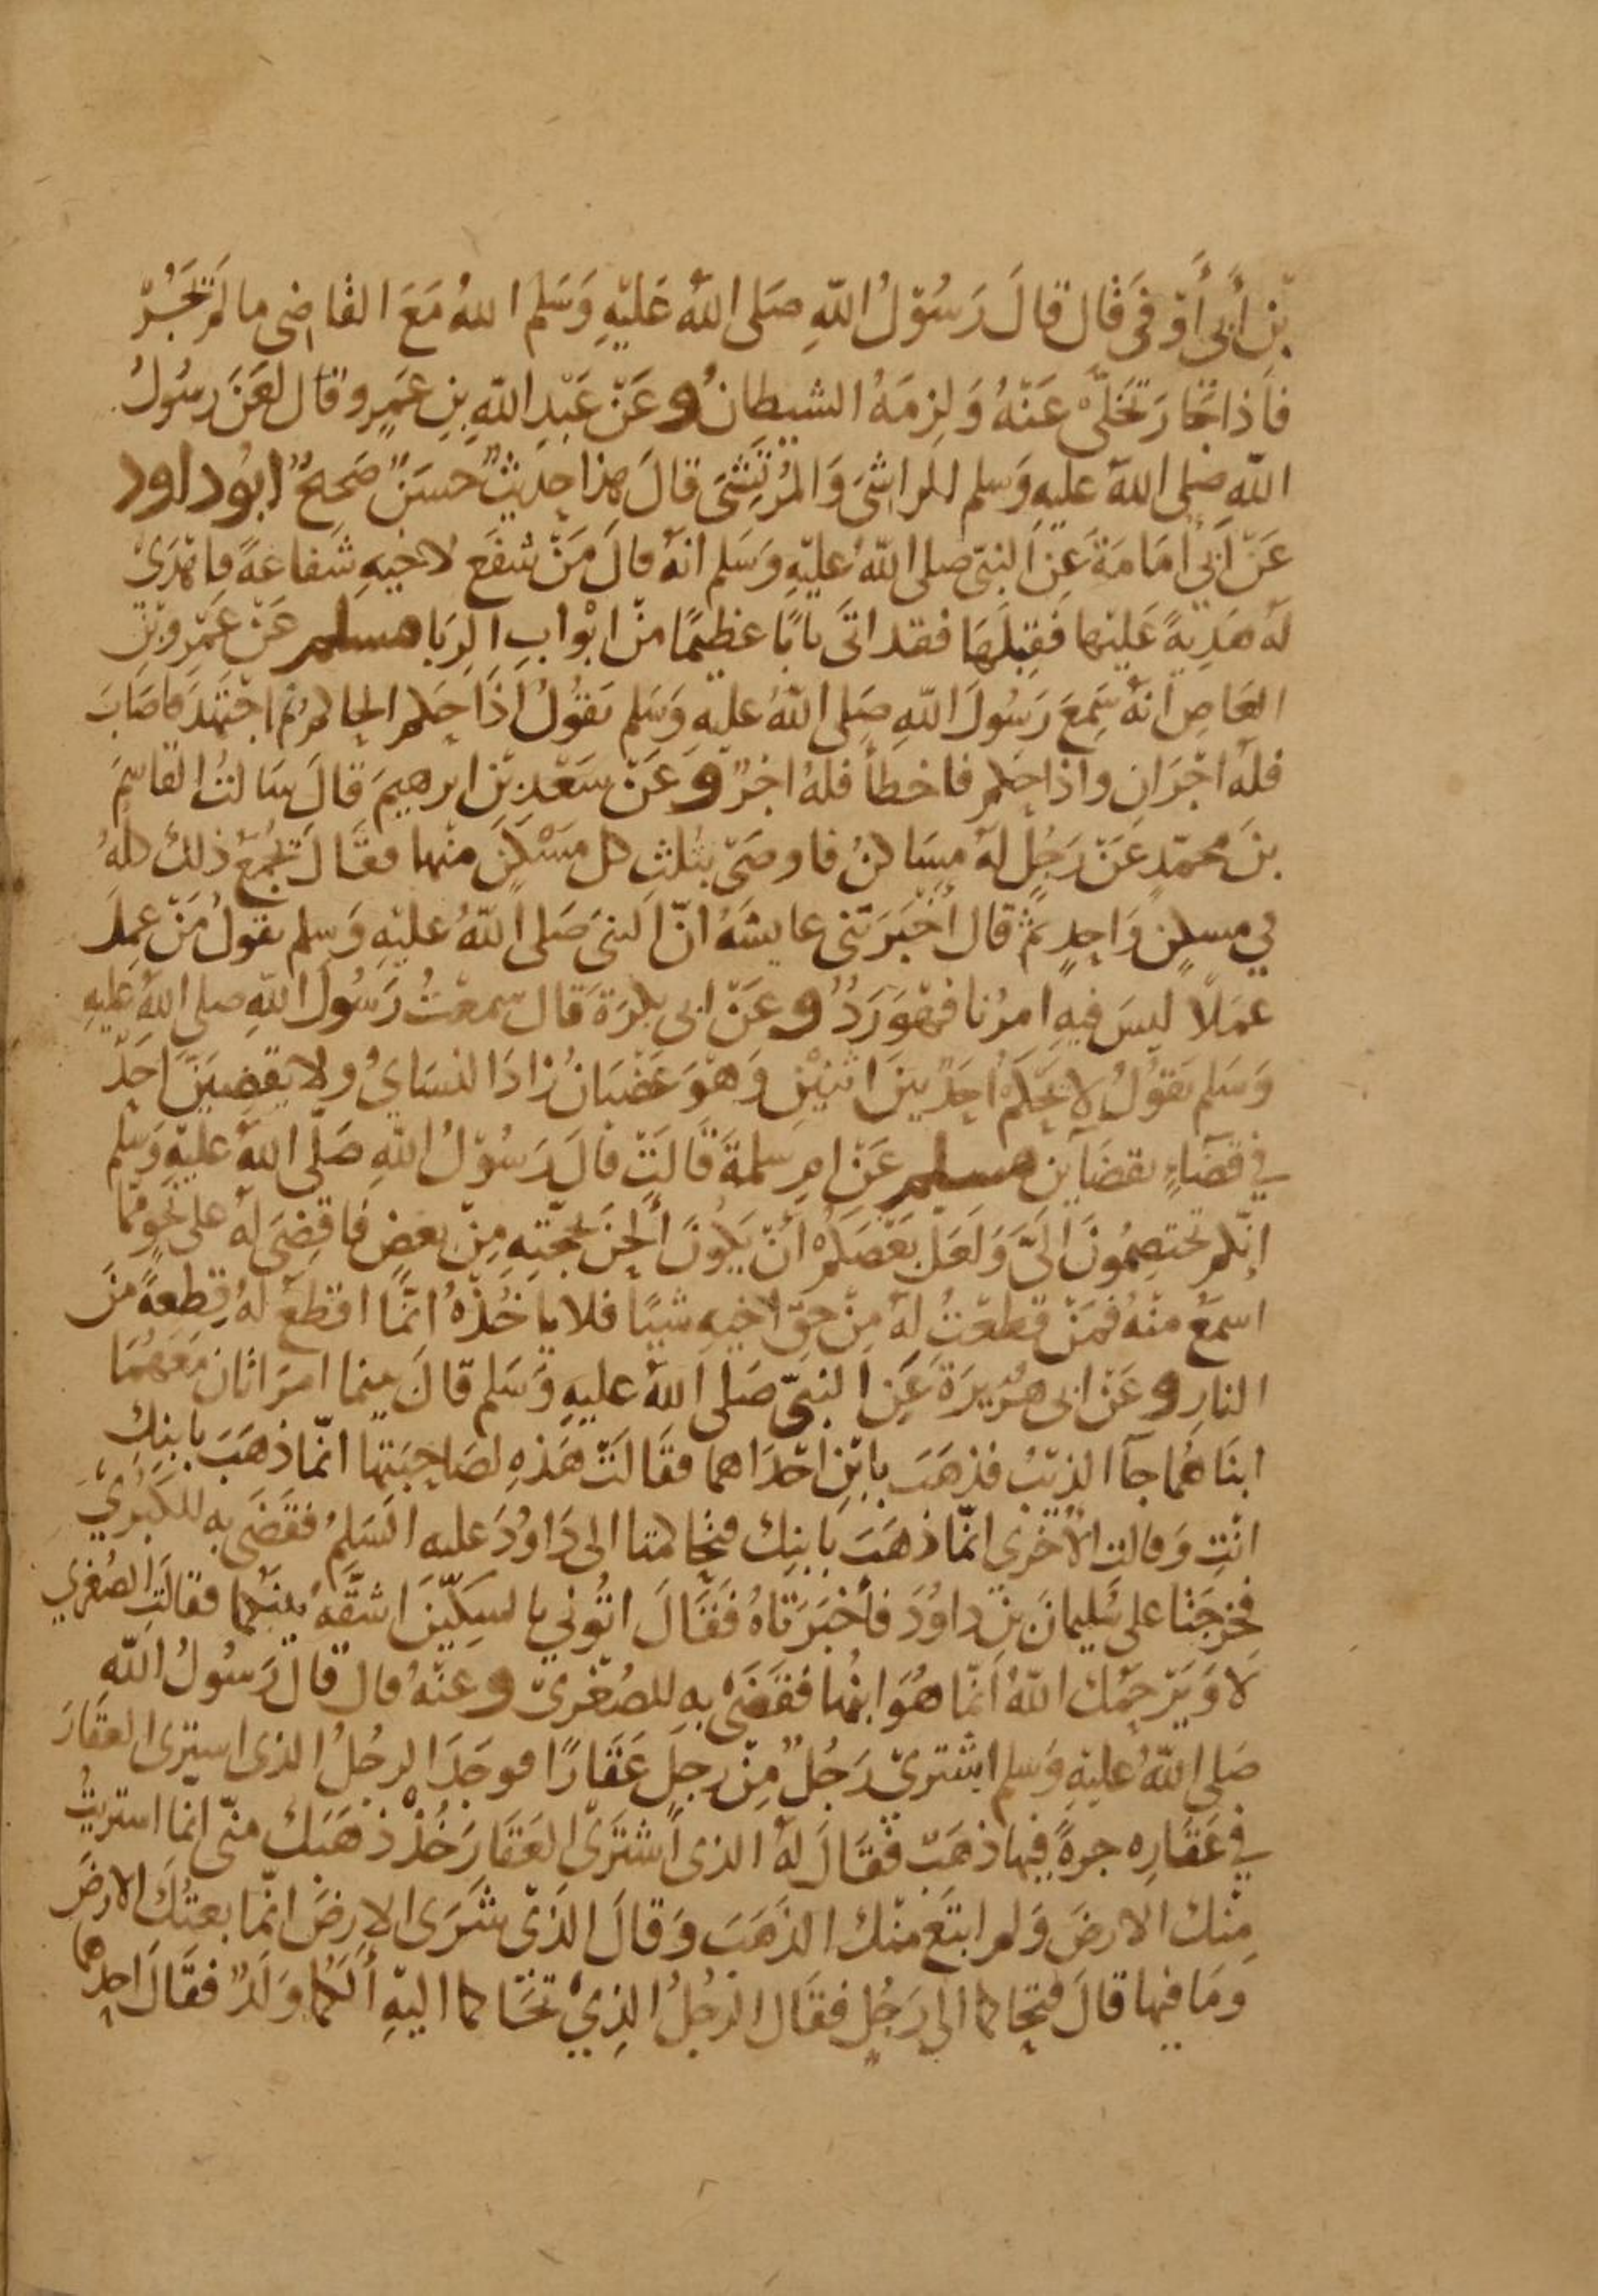 بْنِ أَبِي أَوْفَى قال قالَ رَسُوْلُ اللّهِ صَلى اللّهُ عَليْهِ وَسَلم اللهُ مَعَ القاضِى ما لَمْ يَجُرْ
فاَذا جَارَ تَخَلَّى عَنْهُ وَلِزمَهُ الشيطانُ وعَنْ عَبْدِ اللّهِ بنِ عَمْرٍو قال لَعَنَ رسُولُ
اللّه صلى اللّهُ عليهِ وَسلم الراشىَ وَالمُرْتَشىَ قالَ هذا حديثٌ حسَنٌ صَحيحٌ ابُوداود
عَنْ أَبِي أُمَامَةَ عَنِ النبىّ صلى اللّهُ عليْهِ وَسَلم انهُ قالَ مَنْ شفَع لاخيهِ شفاعَةً فاهْدَىْ
لَهُ هَديةً عَليْها فَقبلَهَا فقد اتَى بابًا عَظيمًا منْ ابْوابِ الرِبَا مسلم عَنْ عَمْرِو بْنِ
العَاصِ انهُ سَمِعَ رَسُولَ اللّهِ صَلى اللّهُ عليهِ وَسَلم يَقُوْلُ اذَا حَكم الحاكمُ ثم اجْتَهَدَ فاصَابَ
فلهُ اجْرَانِ واذا حكم فاخطأ فلهُ اجْرٌ وعَنْ سَعْدِ بْنِ ابرهيمَ قالَ سَالتُ القاسِمَ
بنَ محمّدٍ عَنْ رَجُلٍ لهُ مسَاكنُ فاوصَىْ بثلثِ كل مَسْكنٍ منْها فقَالَ يُجْمَعُ ذلكَ كلهُ
في مسكنٍ وَاحِدٍ ثمّ قال أخْبَرَتْنى عايشَهُ انّ النبىَ صَلى اللّهُ عليْهِ وَسلم يقولُ مَنْ عمِلَ
عمَلاً ليسَ فيهِ امرُنا فهُوَ رَدٌّ وعَنْ ابى بكرَةَ قال سمعْتُ رَسُولَ اللّهِ صلى اللّهُ عليهِ
وَسَلم يَقوْلُ لا يَحْكمْ أحَدٌ بينَ اثنيْنِ وَهْوَ غَضْبَانُ زادَ النسَايُ ولا يقضِيَنَّ أحَدٌ
في قضَآءٍ بقضَآين مسلم عَنْ امِ سلمةَ قَالَتْ قالَ رَسُوْلُ اللّهِ صَلّى اللّهُ عليْهِ وَسَلم
إنكم تختصِمُونَ الىَّ وَلَعَلَ بَعْضَكمْ أنْ يَكونَ أَلحَنَ بحجَّتِهِ مِنْ بعضٍ فاقضِىَ لهُ على نَحْوٍ ممّا
اسمَعُ منْهُ فَمَنْ قطعْتُ لهُ مِنْ حقّ اخيهِ شيئًا فلا ياخُذْهُ انّمَا اقطعُ لهُ قِطعةً منَ
النارِ وعَنْ ابى هُرَيرَةَ عَنِ النبىّ صَلى اللّهُ عليهِ وَسَلم قالَ بينما امرَاتانِ مَعَهُمَا
ابنَاهُما جآ الذِئبُ فذهَبَ بابْنِ احْدَاهما فقَالَتْ هَذِهِ لصَاحِبَتها انّما ذهَبَ بابنِكِ
انْتِ وَقالت الأُخْرى انّما ذهَبَ بابنِك فتحَاكمَتا الى دَاوُدَ عليهِ السَلمُ فقَضَى به للكُبْرَىْ
فخَرجَتا على سُليمانَ بنِ داوُدَ فأخْبَرَتَاهُ فَقَالَ ائْتُوني بالسِكّينِ اشقُّهُ بيْنَكما فقالَتِ الصُغْرى
لاَ وَيَرْحمُك اللّهُ انّما هُوَ ابنُها فَقَضَىْ بهِ للصُغْرَىْ وعنْهُ قال قالَ رَسُولُ اللّه
صَلى اللّهُ عليْهِ وَسَلم اشْترىْ رَجُلٌ مِنْ رجلٍ عَقَارًا فوجَدَ الرجُلُ الذى اشترى العقَارَ
في عَقَارِه جرةً فيها ذهَبٌ فقَالَ لهُ الذى اشْتَرَى العَقَارَ خُذْ ذهَبَك منّى انمَا اشتريتُ
مِنْك الارضَ وَلم ابتَعْ منْك الذهَبَ وَقالَ الذىْ شَرَى الارضَ انّما بعتُكَ الارضَ
وَمَا فيها قالَ فتحَاكما الى رَجُلٍ فقَال الرجُلُ الذِىْ تحَاكما اليْهِ أَلَكُما وَلَدٌ فقَالَ احدُهما